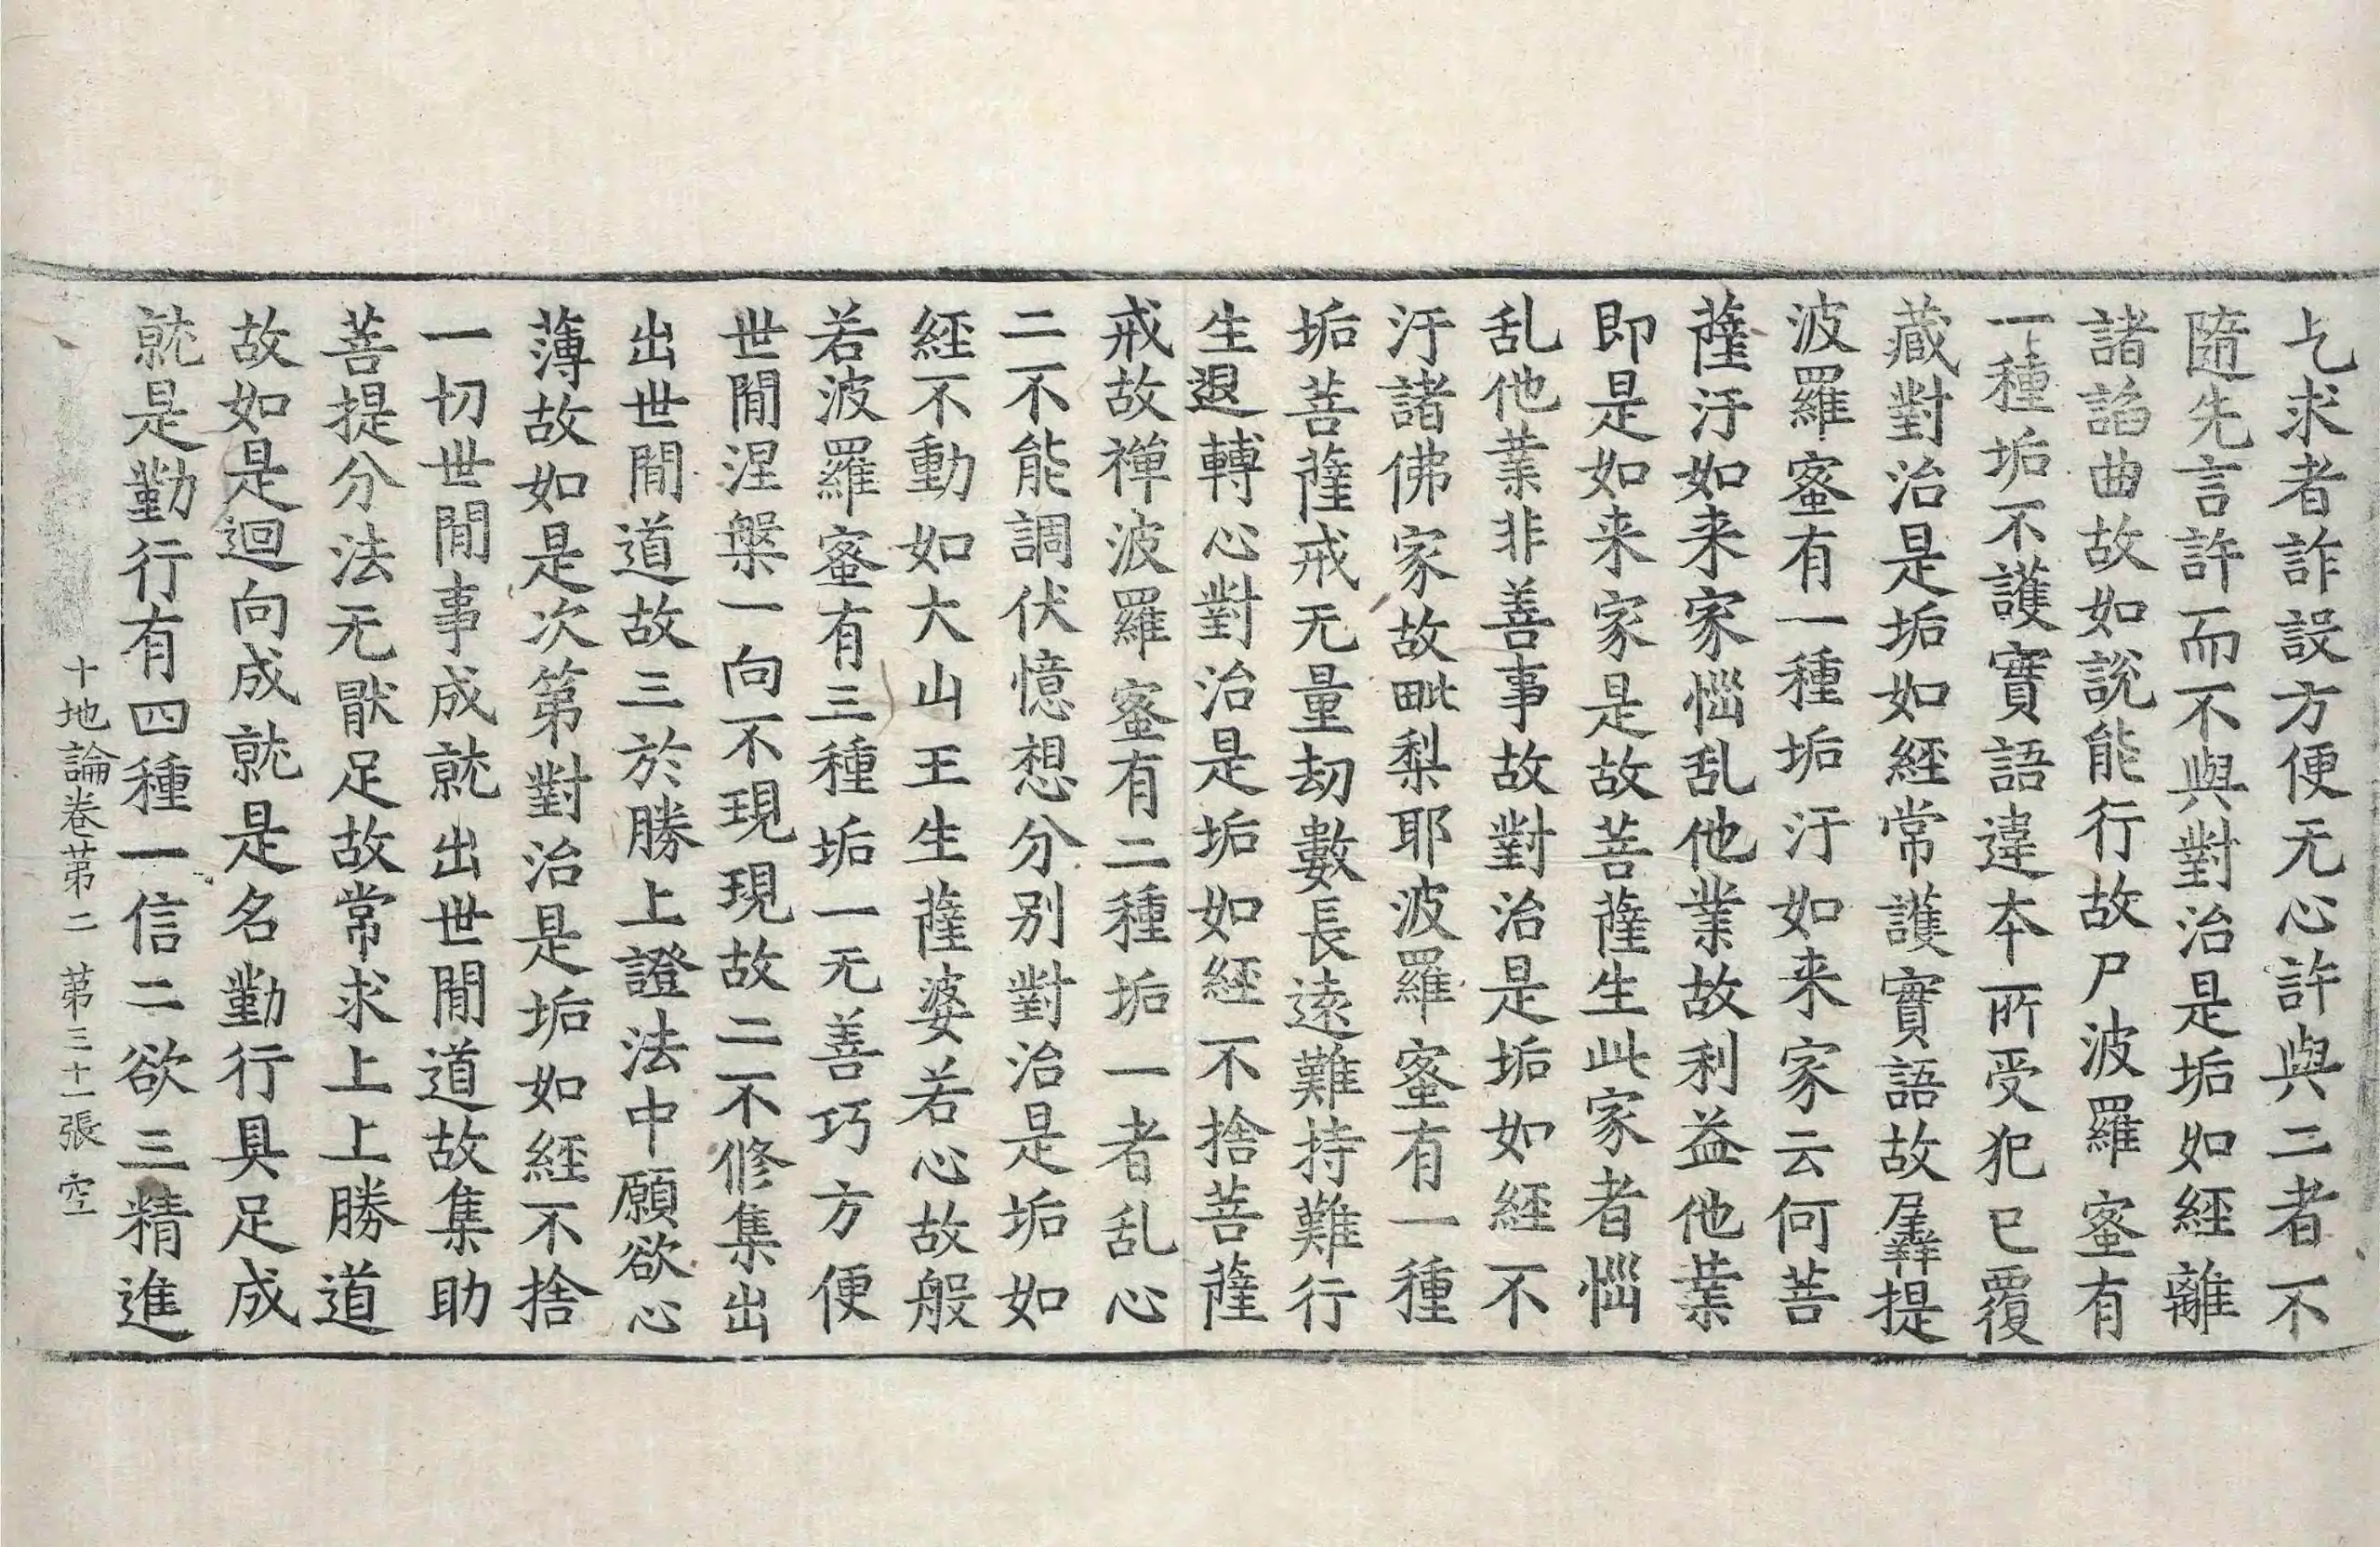 乞求者詐設方便无心許與二者不
隨先言許而不與對治是垢如經離
諸諂曲故如說能行故尸波羅蜜有
一種垢不護實語違本所受犯已覆
藏對治是垢如經常護實語故羼提
波羅蜜有一種垢汙如来家云何菩
薩汙如来家惱乱他業故利益他業
即是如来家是故菩薩生此家者惱
乱他業非善事故對治是垢如經不
汙諸佛家故毗梨耶波羅蜜有一種
垢菩薩戒无量劫數長遠難持難行
生退轉心對治是垢如經不捨菩薩
戒故禅波羅蜜有二種垢一者乱心
二不能調伏憶想分別對治是垢如
經不動如大山王生薩婆若心故般
若波羅蜜有三種垢一无善巧方便
世閒涅槃一向不現現故二不修集出
出世閒道故三於勝上證法中願欲心
薄故如是次第對治是垢如經不捨
一切世閒事成就出世閒道故集助
菩提分法无猒足故常求上上勝道
故如是迴向成就是名勤行具足成
就是勤行有四種一信二欲三精進
十地論卷苐二 苐三十一張 空